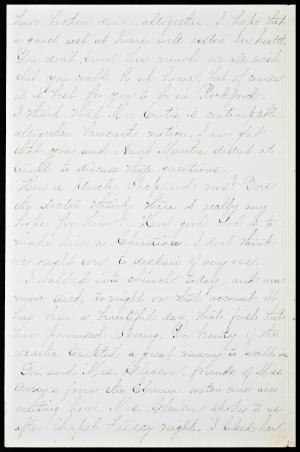 have broken down altogether. I hope that
a quiet rest at home will restore her health.
You don't know how much we all wish
that you could be at home, but of course
it is best for you to be in Rockford.
I think that Mr. Curtis is contemptible
altogether beneath notice. I am glad
that you and Aunt Martha did not at-
tempt to discuss those questions.
How is Uncle Shepherd now? Does
the doctor think there is really any
hope for him? How good God is to
make him a Christian. I don't think
we ought ever to despair of any one.
I walked into church today, and am
more tired, to night on that account. It
has been a beautiful day, that fresh that
has promised spring. The beauty of the
weather tempted a great many to walk in.
Dr. and Mrs. Gleason, friends of Miss
from the Elmira water cure are
visiting here. Mrs. Gleason spoke to us
after Chapel Friday night. I liked her